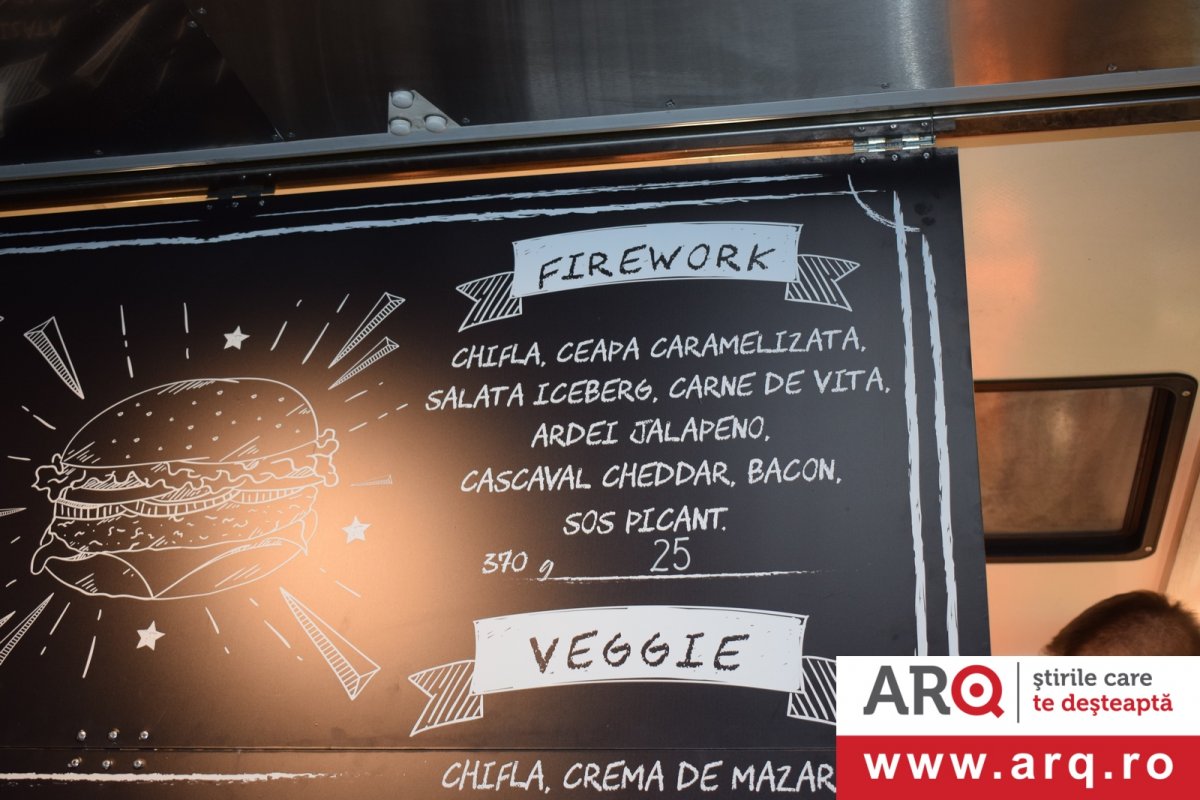 FIREWORK
CHIFLA, CEAPA CARAMELIZATA,
SALATA ICEBERG, CARNE DE VITA,
ARDEI JALAPENO,
CASCAVAL CHEDDAR, BACON,
SOS PICANT.
370 g 25
VEGGIE
CHIFLA, CREMA DE MAZAR
ARQ
știrile care
te deșteaptă
www.arq.ro